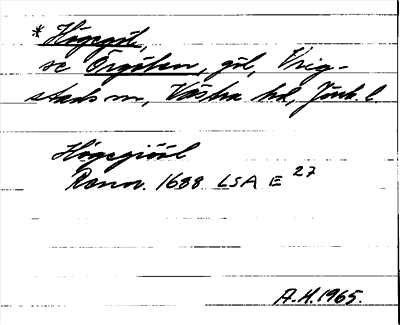 *Högegöl,
se Örgölen, göl, Vrig-
stads sn, Västra hd, Jönk. l
Högegiööl
Rannr. 1688 LSA E 27
A.H. 1965.